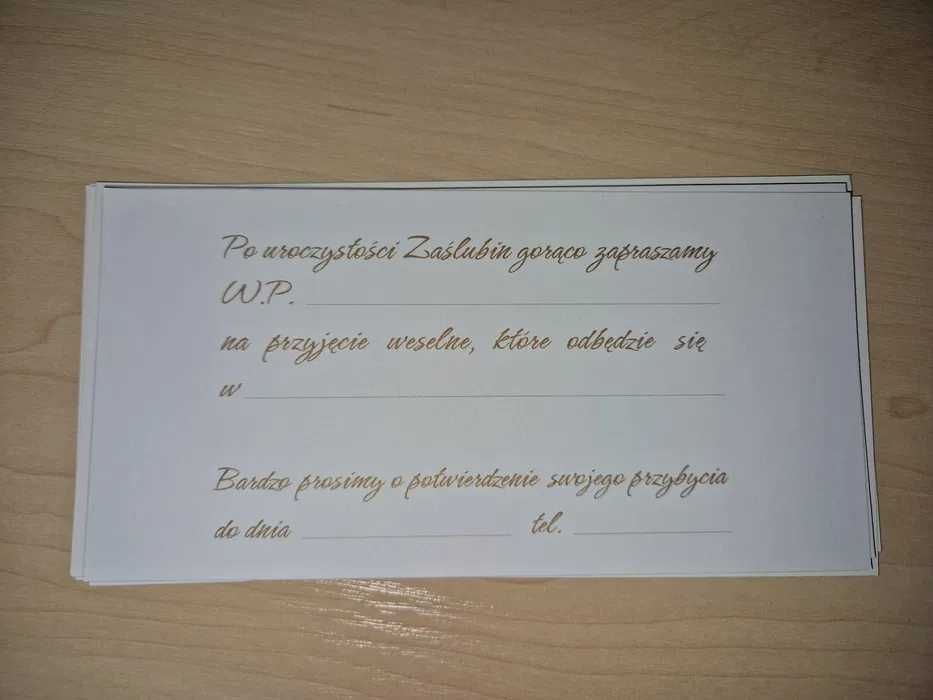 Po uroczystości Zaślubin gorąco zapraszamy
W.P.
na przyjęcie weselne, które odbędzie się
w
Bardzo prosimy o potwierdzenie swojego przybycia
do dnia tel.